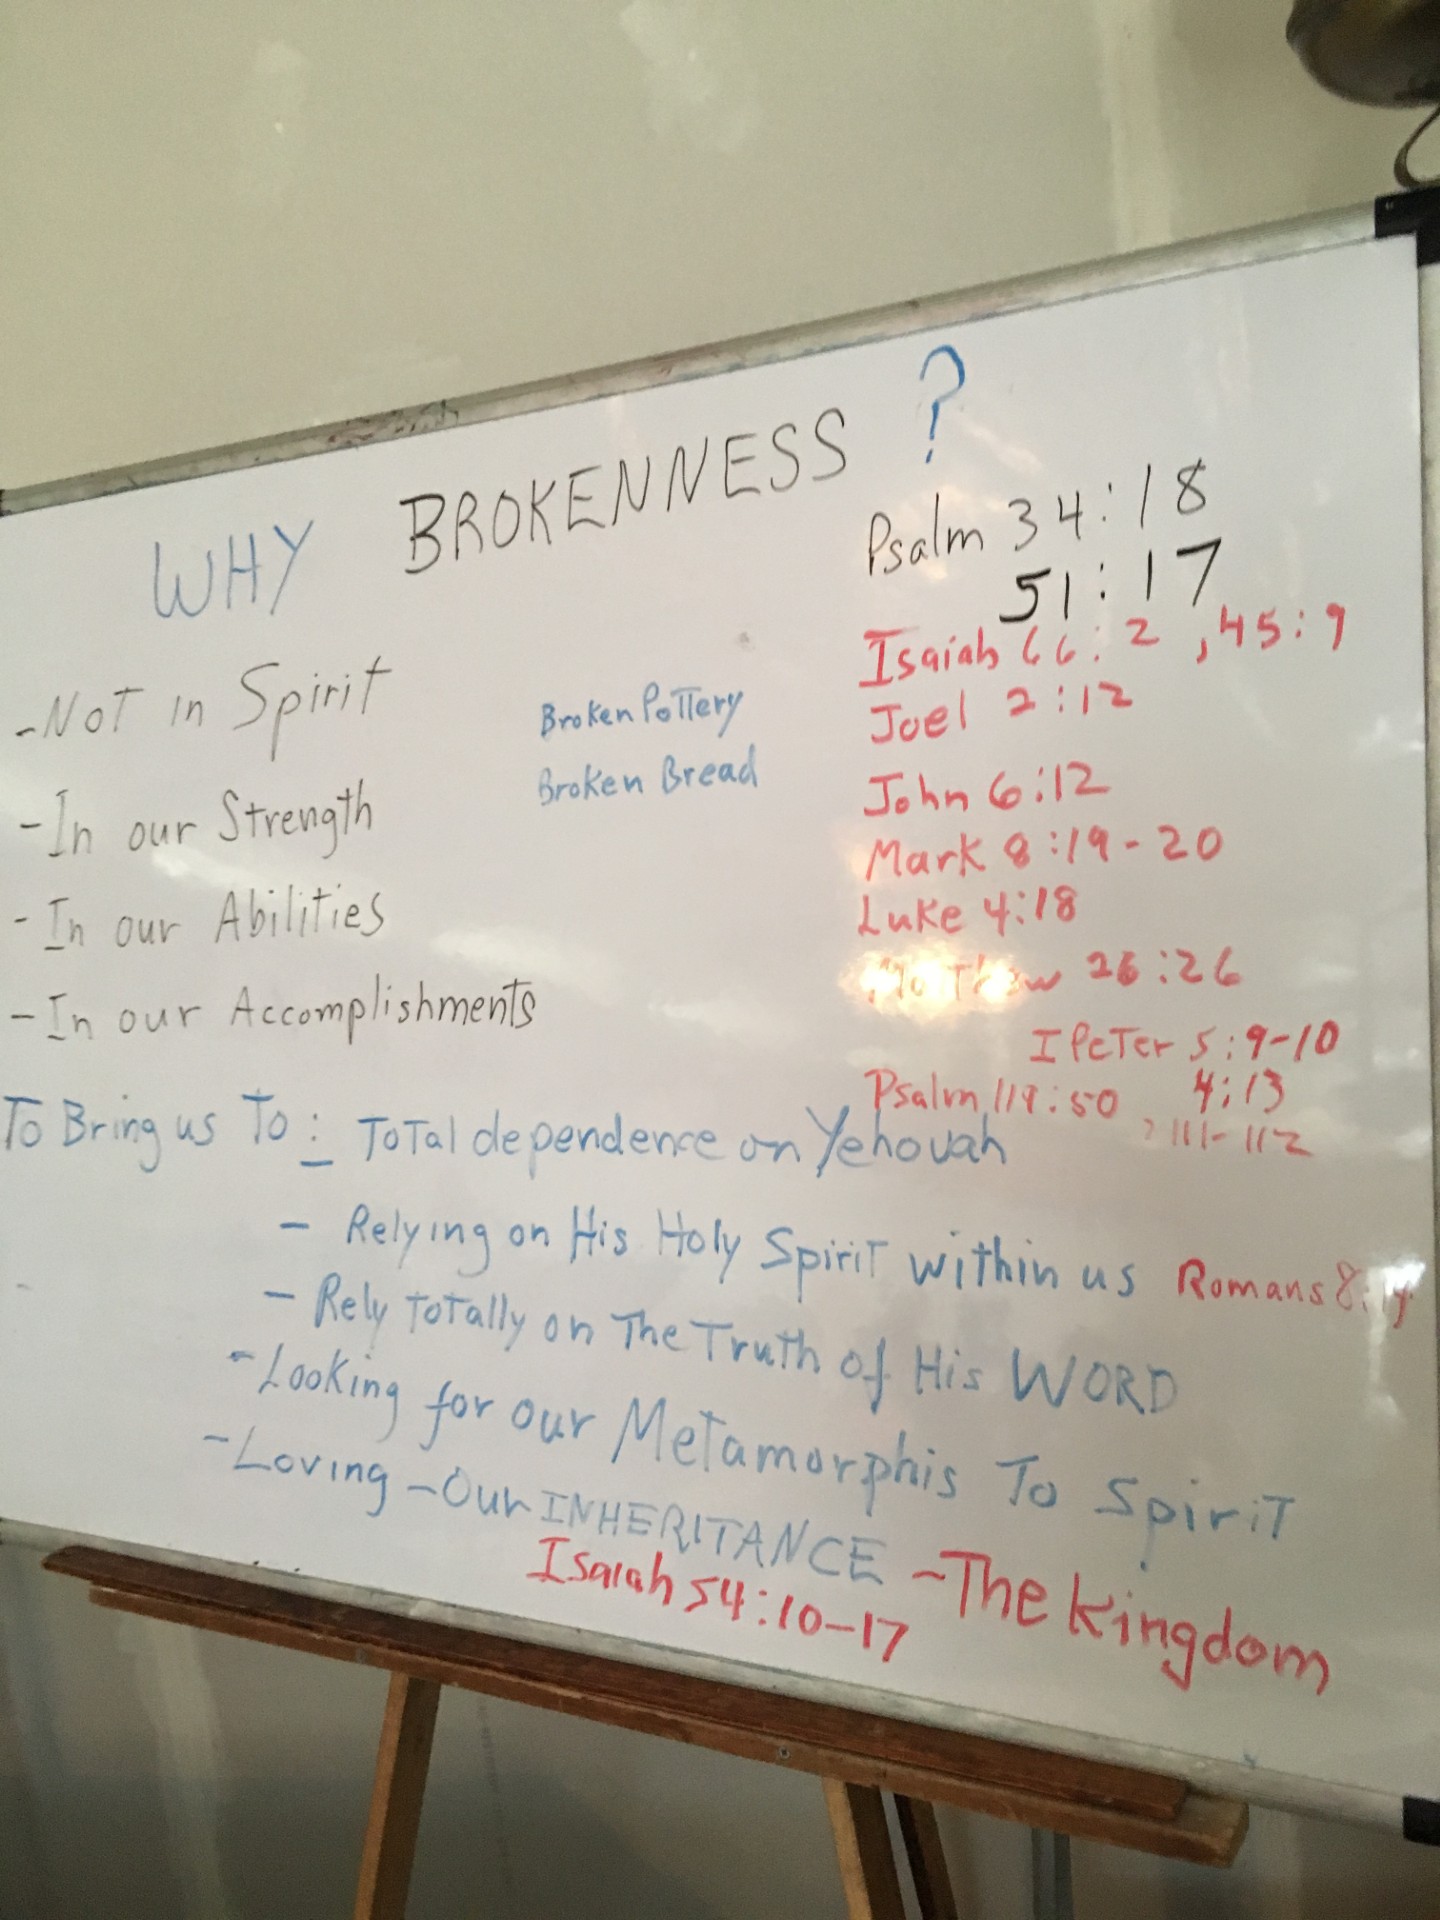 WHY BROKENNESS ?
-Not in Spirit
-In our Strength
-In our Abilities
-In our Accomplishments
Broken Pottery
Broken Bread
Psalm 34:18
51:17
Isaiah 66:2, 45:9
Joel 2:12
John 6:12
Mark 8:19-20
Luke 4:18
Matthew 26:26
I Peter 5:9-10
4:13
Psalm 119:50
, 111-112
To Bring us To: Total dependence on Yehovah
- Relying on His Holy Spirit within us Romans
- Rely Totally on The Truth of His WORD
-Looking for our Metamorphis To Spirit
-Loving -Our INHERITANCE -The Kingdom
Isaiah 54:10-17